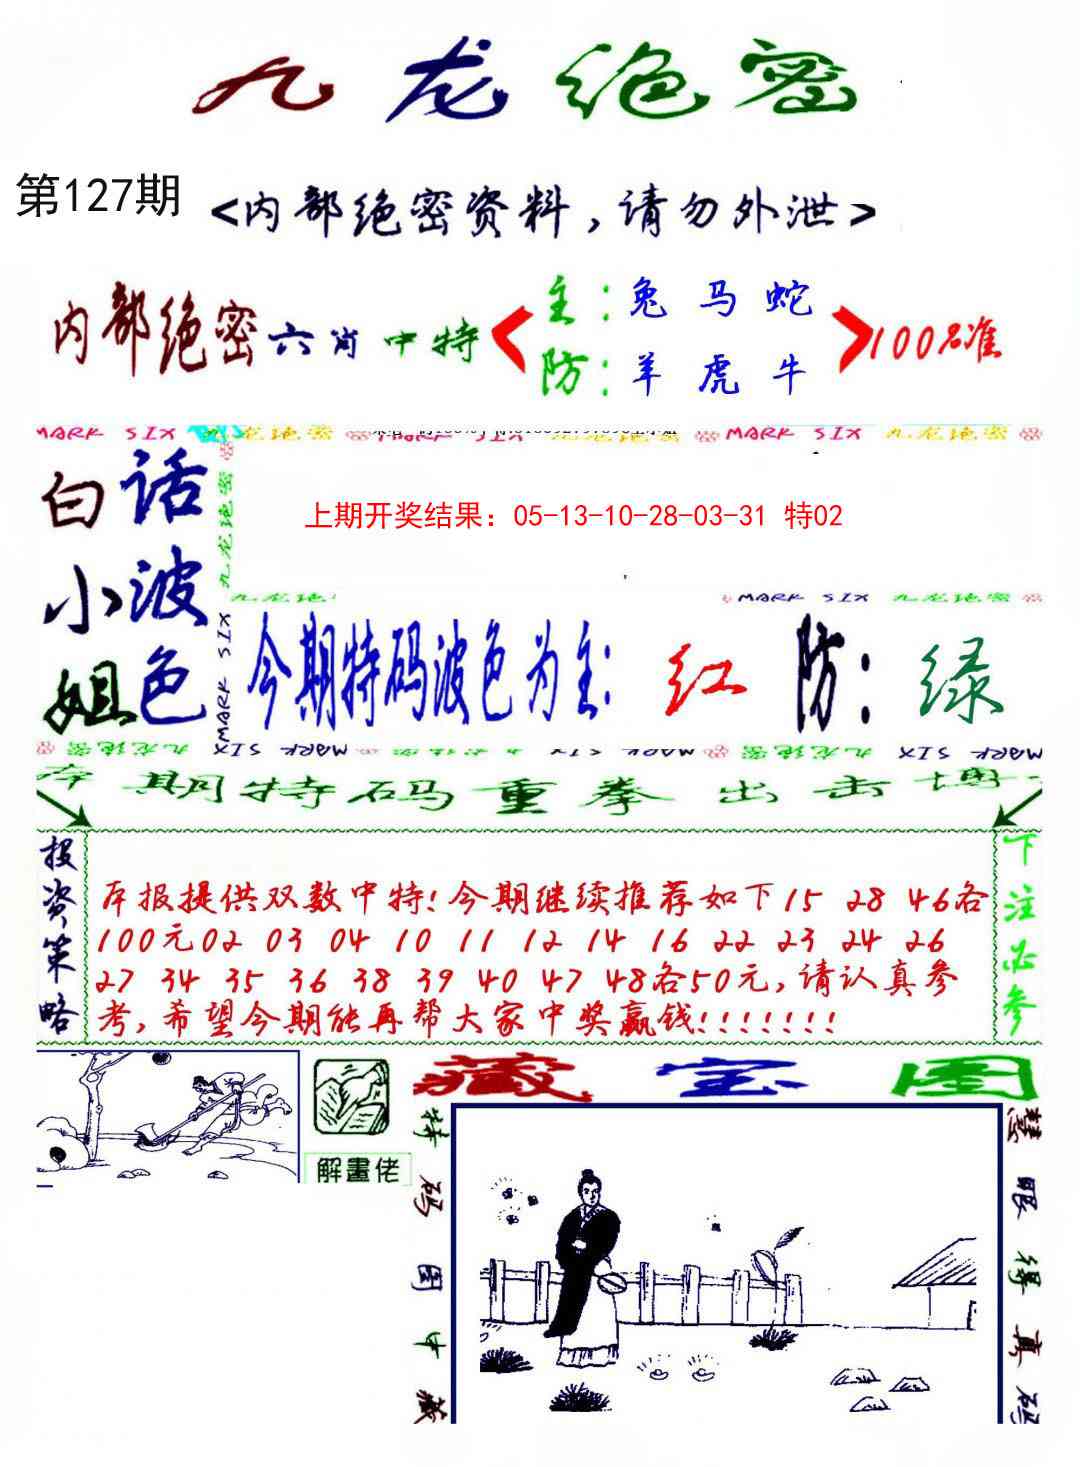 九龙绝密
第127期
<内部绝密资料,请勿外泄>
内部绝密六肖中特
主:兔 马 蛇
防:羊 虎 牛
100%准
MARK SIX
九龙绝密
MARK SIX
MARK SIX 九龙绝密
白小姐
话波色
九龙绝密
MARK SIX
上期开奖结果：05-13-10-28-03-31 特02
九龙绝
MARK SIX 九龙绝密
今期特码波色为主:红 防:绿
九龙绝密 MARK SIX MARK SIX 九龙绝密 MARK SIX 九龙绝密 MARK SIX
本期特码重拳出击博
投资策略
本报提供双数中特!今期继续推荐如下15 28 46各
100元02 03 04 10 11 12 14 16 22 23 24 26
27 34 35 36 38 39 40 47 48各50元,请认真参
考,希望今期能再帮大家中奖赢钱!!!!!!!
下注必参
解畫佬
藏宝图
特码图中藏
慧眼得真码